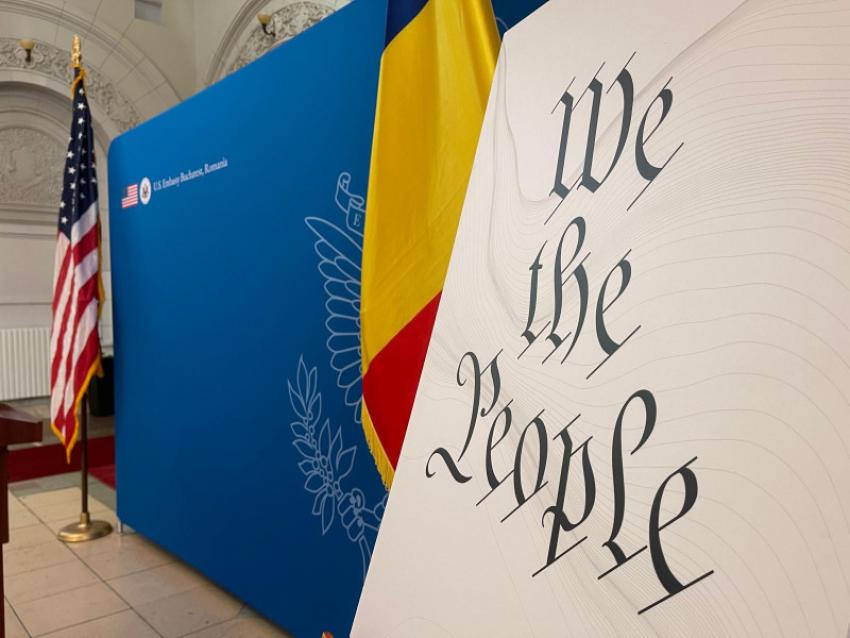 U.S. Embassy Bucharest, Romania
E
We
the
People